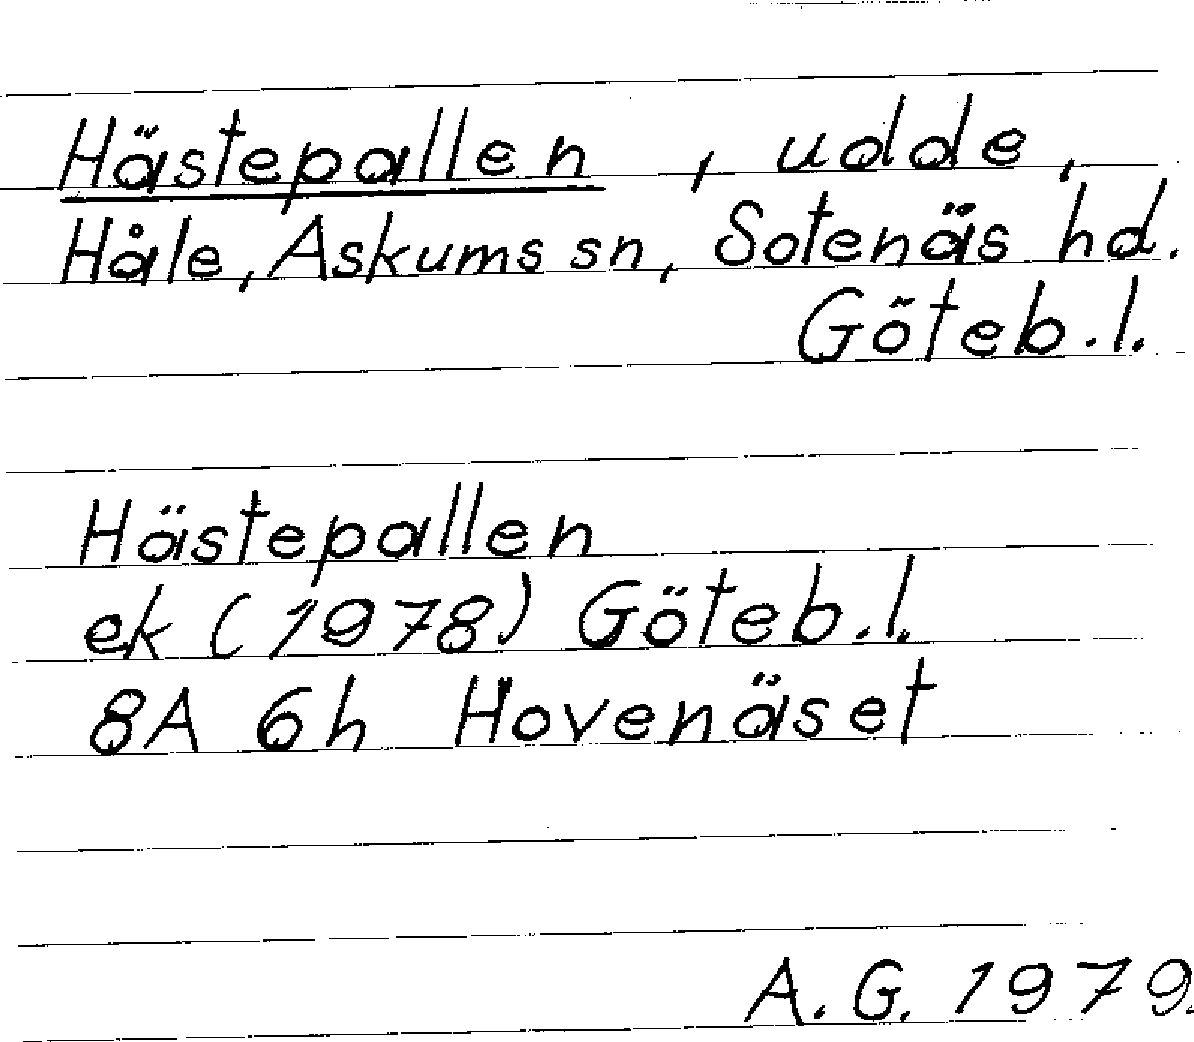 Hästepallen , udde,
Håle, Askums sn, Sotenäs hd.
Göteb.l.
Hästepallen
ek (1978) Göteb.l.
8A 6h Hovenäset
A.G. 1979.